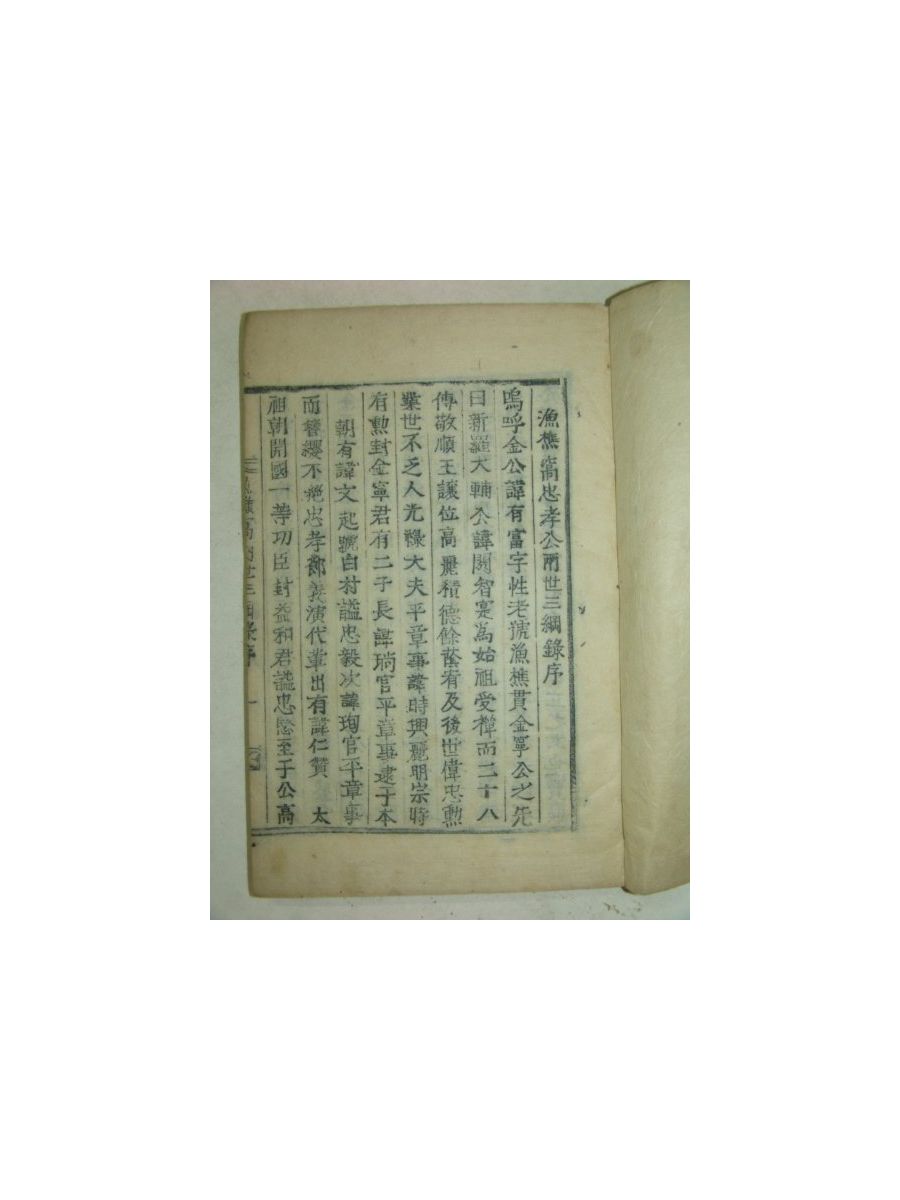 漁樵窩忠孝公兩世三綱錄序
嗚呼金公諱有富字性老號漁樵貫金寧公之先
曰新羅大輔公諱閼智寔爲始祖受禪而二十八
傳敬順王讓位高麗積德餘蔭宥及後世偉忠勲
業世不乏人光祿大夫平章事諱時興麗明宗時
有勲封金寧君有二子長諱琑官平章事逮于本
朝有諱文起號白村諡忠毅次諱珣官平章事
而簪纓不絶忠孝節義演代輩出有諱仁贊 太
祖朝開國一等功臣封益和君諡忠愍至于公高
世三綱錄序 一